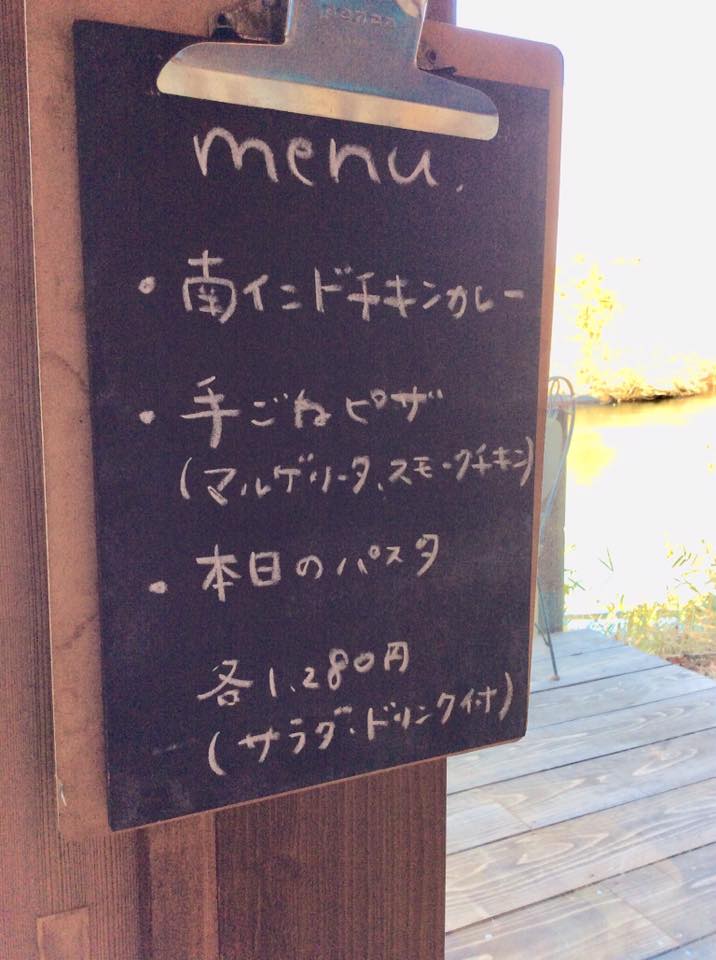 menu.
・南インドチキンカレー
・手ごねピザ
(マルゲリータ、スモークチキン)
・本日のパスタ
各1,280円
(サラダ・ドリンク付)